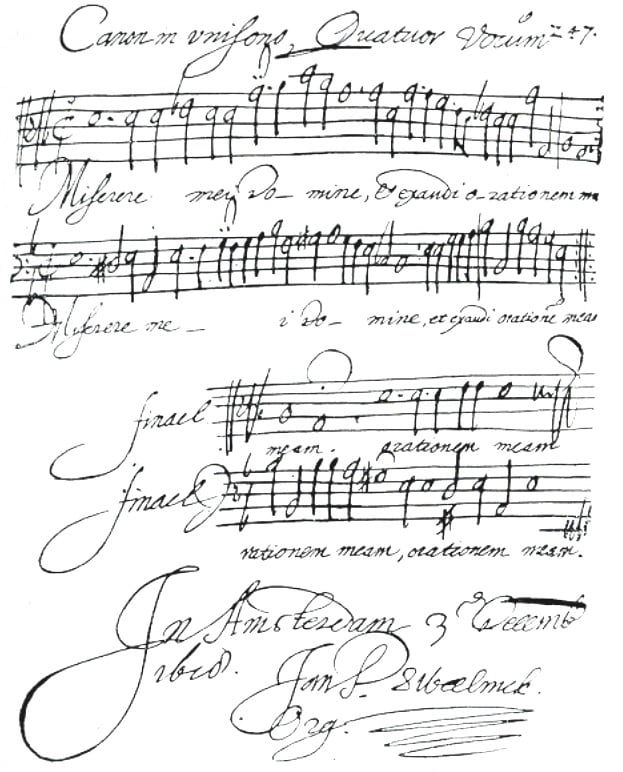 Canon in unisono, Quatuor Vocum 247.
Miserere mei Do- mine, et exaudi o-rationem me
Miserere me - i Do- mine, et exaudi orationē meam
finael
meam. orationem meam
finael
rationem meam, orationem meam.
In Amsterdam 3 Decemb
1618. Jan P. Swelinck.
Org.